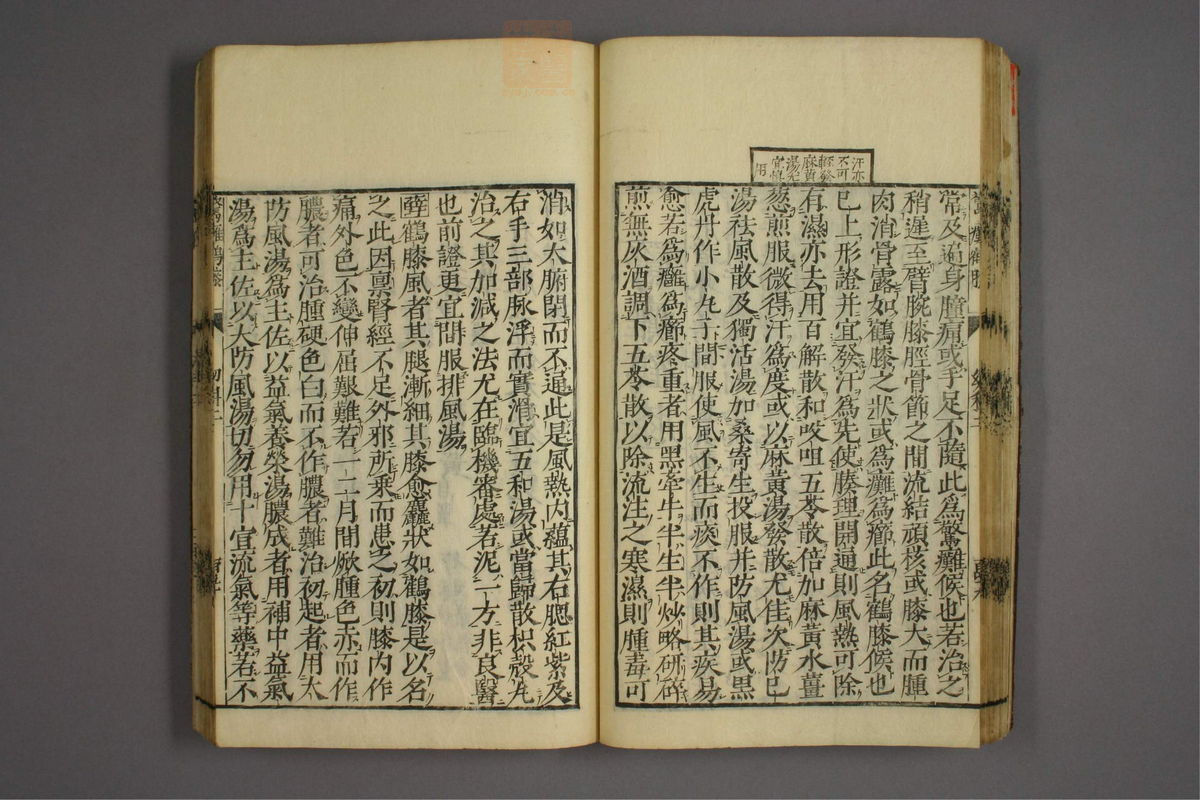 汗亦
不可
輕發
麻黃
湯尤
宜慎
用
常及遍身腫痛或手足不隨此爲驚癱候也若治之
稍遲至臂腕膝脛骨節之間流結頑核或膝大而腫
肉消骨露如鶴膝之狀或爲癱爲癤此名鶴膝候也
已上形證并宜發汗爲先使腠理開通則風熱可除
有濕亦去用百解散和㕮咀五苓散倍加麻黃水薑
葱煎服微得汗爲度或以麻黃湯發散尤佳次防已
湯祛風散及獨活湯加桑寄生投服并防風湯或黑
虎丹作小丸子間服使風不生而痰不作則其疾易
愈若爲癱爲癤疼重者用黑牽牛半生半炒略研碎
煎無灰酒調下五苓散以除流注之寒濕則腫毒可
消如大腑閉而不通此是風熱內蘊其右腮紅紫及
右手三部脉浮而實滑宜五和湯或當歸散枳殼丸
治之其加減之法尤在臨機審處若泥一方非良醫
也前證更宜間服排風湯
薛鶴膝風者其腿漸細其膝愈麤狀如鶴膝是以名
之此因禀腎經不足外邪所乘而患之初則膝內作
痛外色不變伸屈艱難若一二月間焮腫色赤而作
膿者可治腫硬色白而不作膿者難治初起者用大
防風湯爲主佐以益氣養榮湯膿成者用補中益氣
湯爲主佐以大防風湯切勿用十宣流氣等藥若不